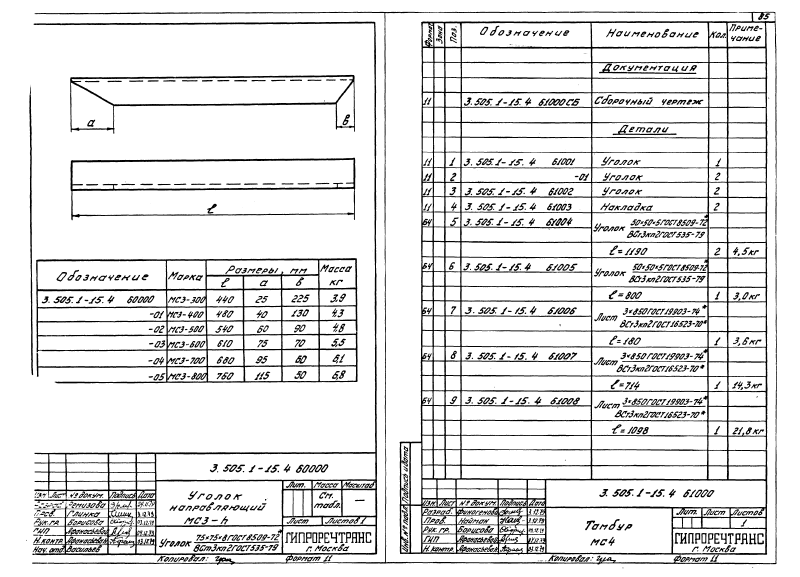 85
a
в
ℓ
Обозначение Марка Размеры, мм Масса кг
ℓ a в
3.505.1-15.4 60000 МС3-300 440 25 225 3,9
-01 МС3-400 480 40 130 4,3
-02 МС3-500 540 60 90 4,8
-03 МС3-600 610 75 70 5,5
-04 МС3-700 680 95 60 6,1
-05 МС3-800 760 115 50 6,8
3.505.1-15.4 60000
Уголок направляющий МС3-h
Лит. Масса Масштаб
См. табл.
Лист Листов 1
Изм Лист № докум. Подпись Дата
Ремизова
Пров. Глинка
Рук. гр. Борисова
ГИП Афанасьева
Н. контр. Афанасьева
Нач. отд. Васильев
Уголок 75×75×8 ГОСТ 8509-72*
ВСт3кп2 ГОСТ 535-79
ГИПРОРЕЧТРАНС
г. Москва
Копировал: Формат 11
Формат Зона Поз. Обозначение Наименование Кол. Примечание
Документация
11 3.505.1-15.4 61000СБ Сборочный чертеж
Детали
11 1 3.505.1-15.4 61001 Уголок 1
11 2 -01 Уголок 2
11 3 3.505.1-15.4 61002 Уголок 2
11 4 3.505.1-15.4 61003 Накладка 2
БЧ 5 3.505.1-15.4 61004 Уголок 50×50×5 ГОСТ 8509-72*
ВСт3кп2 ГОСТ 535-79
ℓ=1190 2 4,5кг
БЧ 6 3.505.1-15.4 61005 Уголок 50×50×5 ГОСТ 8509-72*
ВСт3кп2 ГОСТ 535-79
ℓ=800 1 3,0кг
БЧ 7 3.505.1-15.4 61006 Лист 3×850 ГОСТ 19903-74*
ВСт3кп2 ГОСТ 16523-70*
ℓ=180 1 3,6кг
БЧ 8 3.505.1-15.4 61007 Лист 3×850 ГОСТ 19903-74*
ВСт3кп2 ГОСТ 16523-70*
ℓ=714 1 14,3кг
БЧ 9 3.505.1-15.4 61008 Лист 3×850 ГОСТ 19903-74*
ВСт3кп2 ГОСТ 16523-70*
ℓ=1098 1 21,8кг
Инв. № подл. Подпись и дата
3.505.1-15.4 61000
Изм. Лист № докум. Подпись Дата
Разраб. Финогенова
Пров. Найман
Рук. гр. Борисова
ГИП Афанасьева
Н. контр. Афанасьева
Тамбур МС4
Лит. Лист Листов
1
ГИПРОРЕЧТРАНС
г. Москва
Копировал: Формат 11